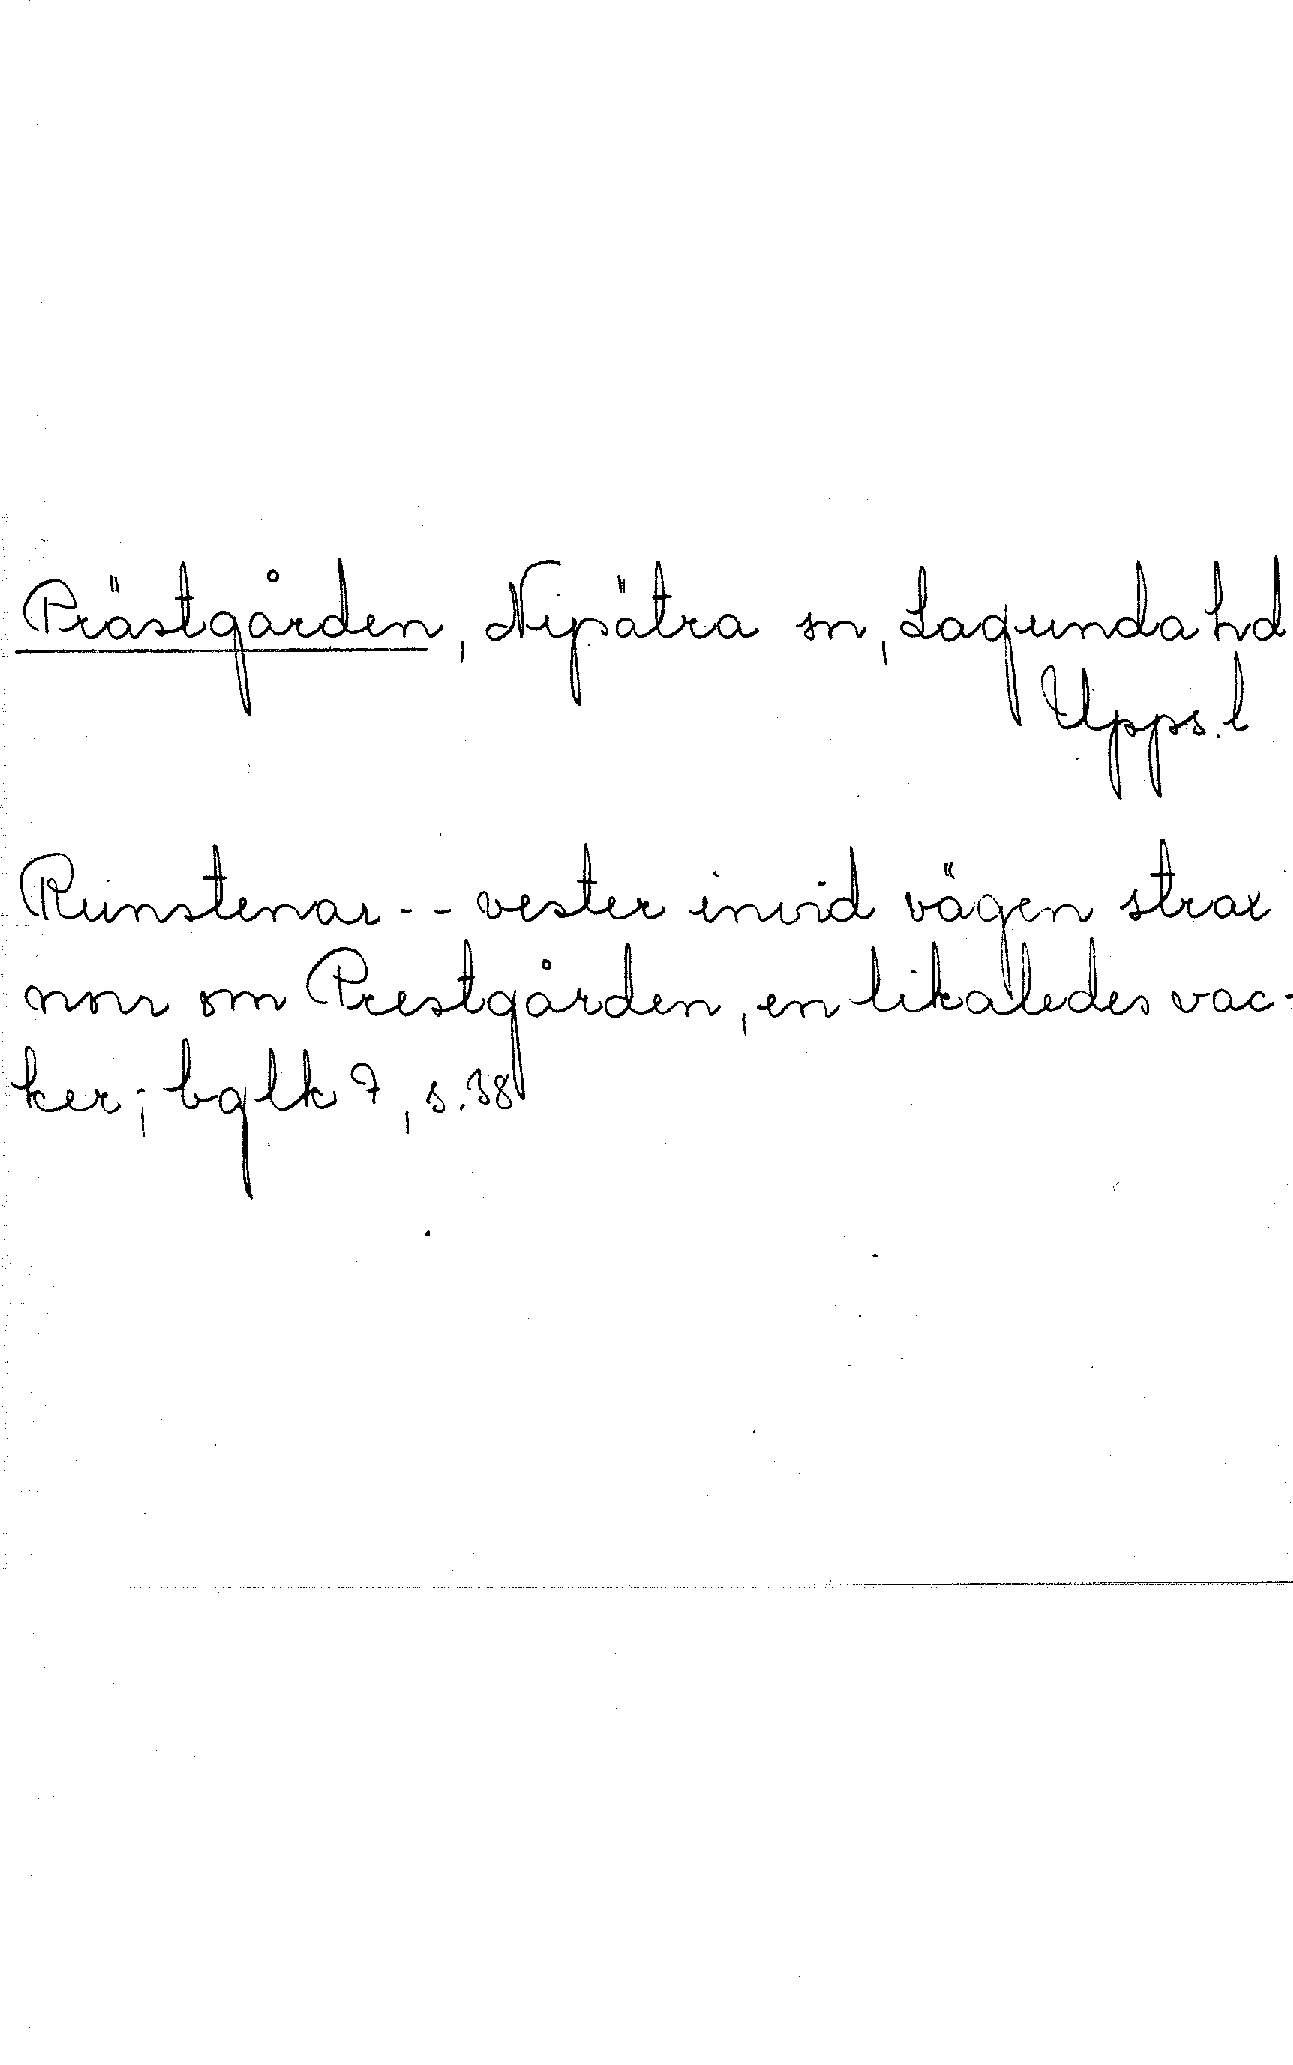 Prästgården, Nysätra sn, Lagunda hd
Upps. l
Runstenar - - vester invid vägen strax
norr om Prestgården, en likaledes vac-
ker; bglk 7, s. 38